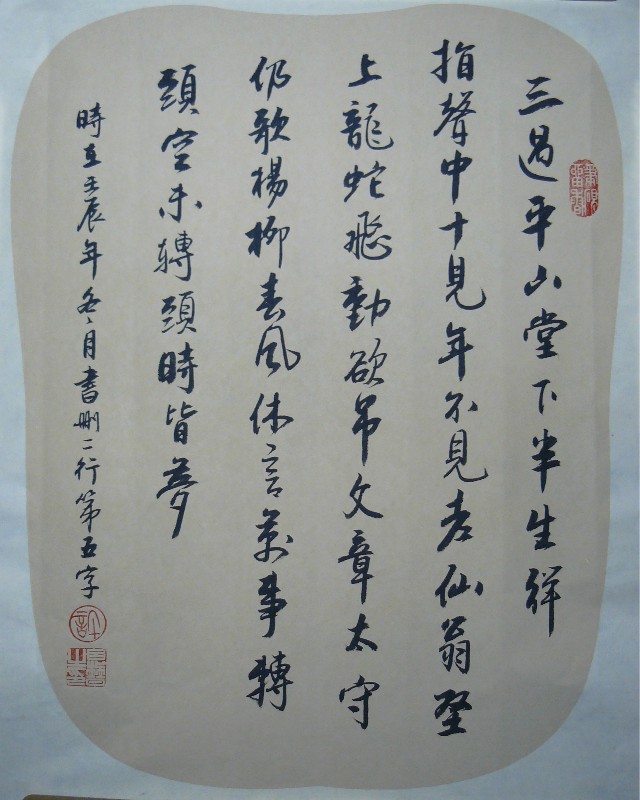 三過平山堂下半生彈
指聲中十見年不見老仙翁壁
上龍蛇飛動欲吊文章太守
仍歌楊柳春風休言萬事轉
頭空未轉頭時皆夢
時在壬辰年冬月書刪二行第五字
許